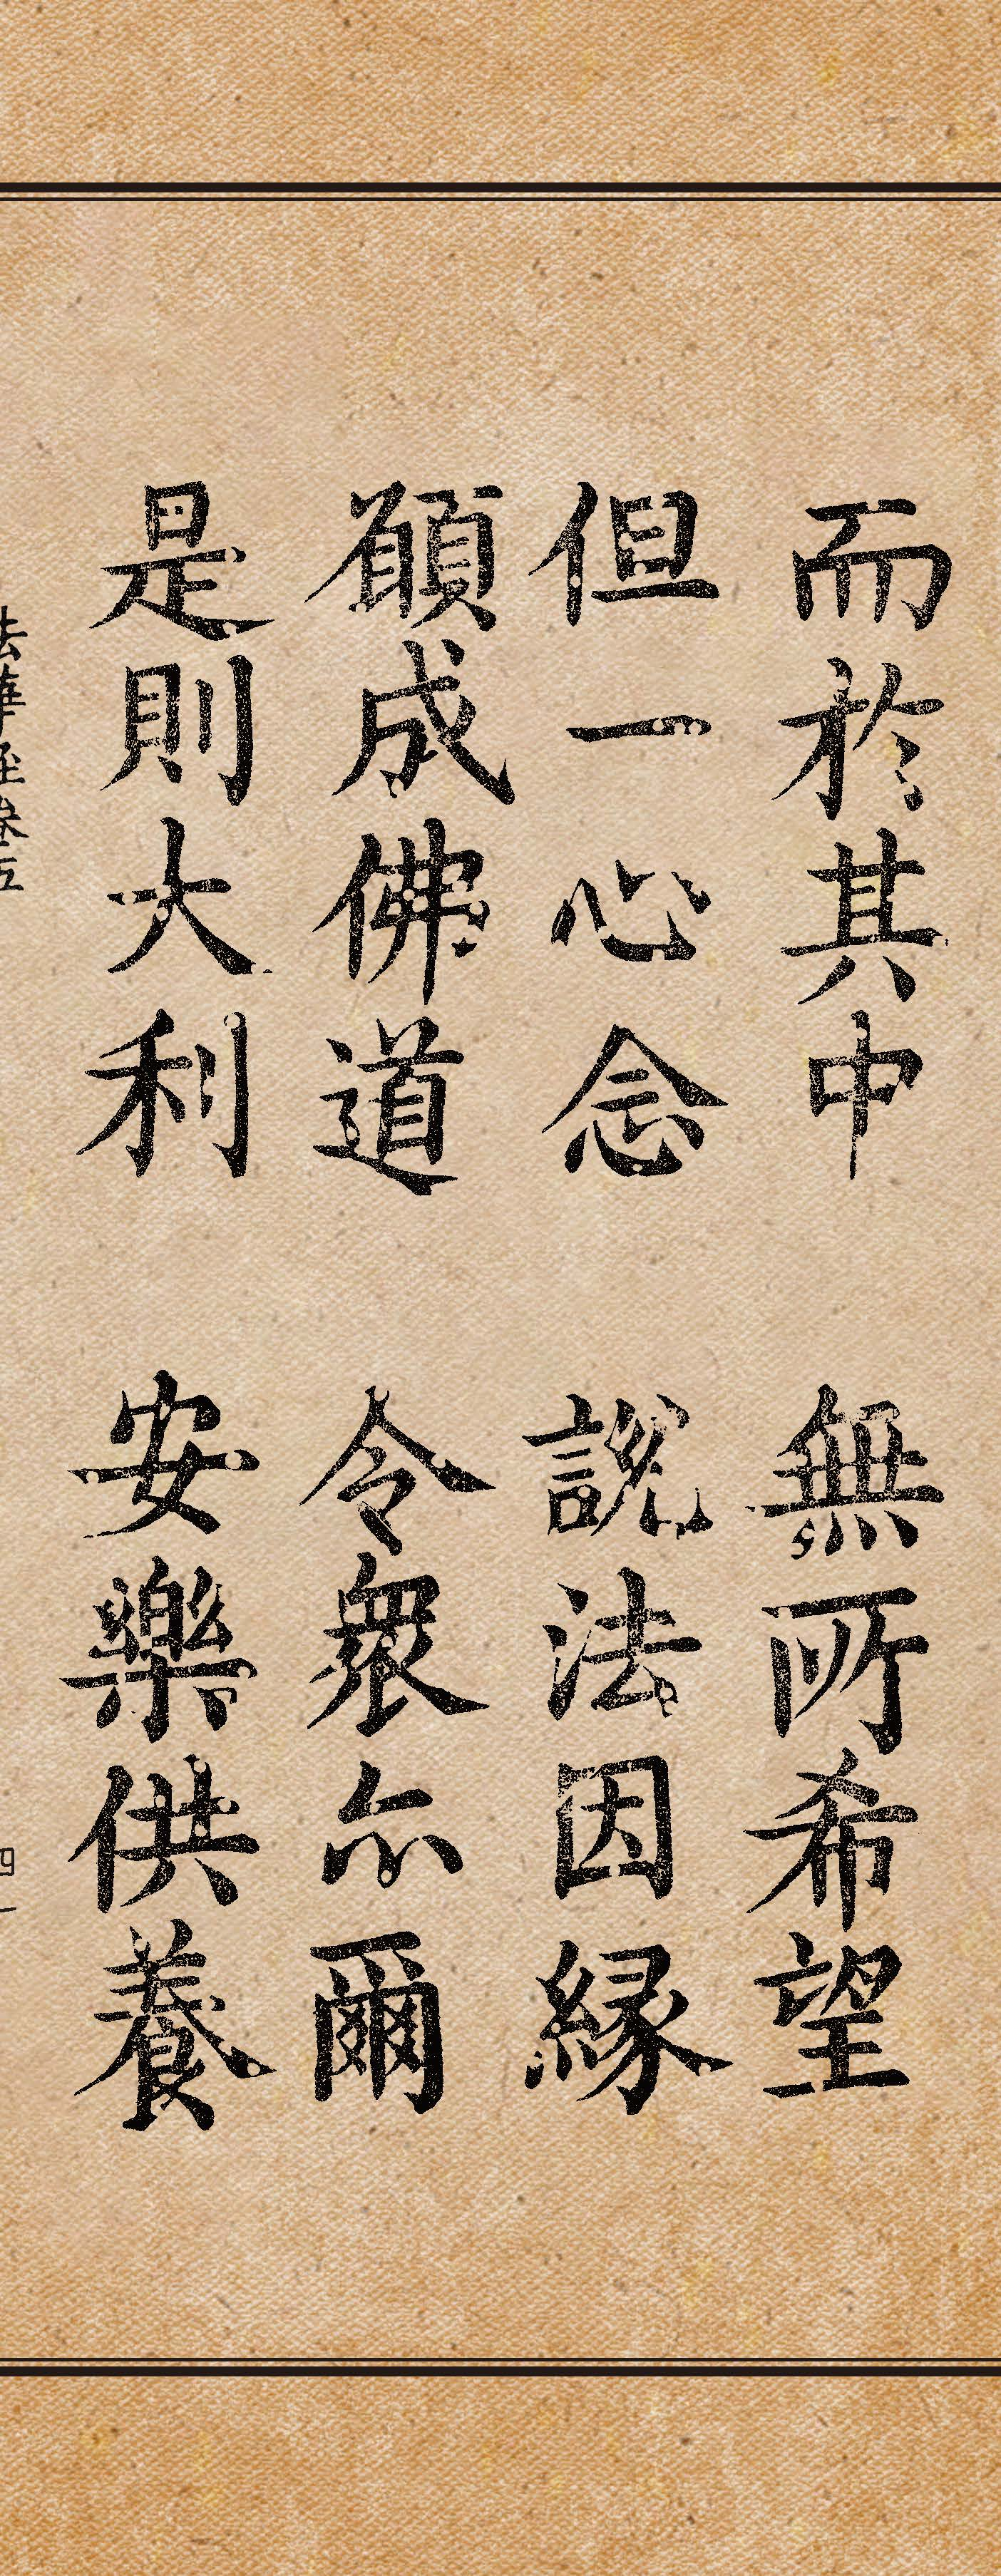 而於其中 無所希望
但一心念 說法因緣
願成佛道 令衆亦爾
是則大利 安樂供養
法華經卷五
四一